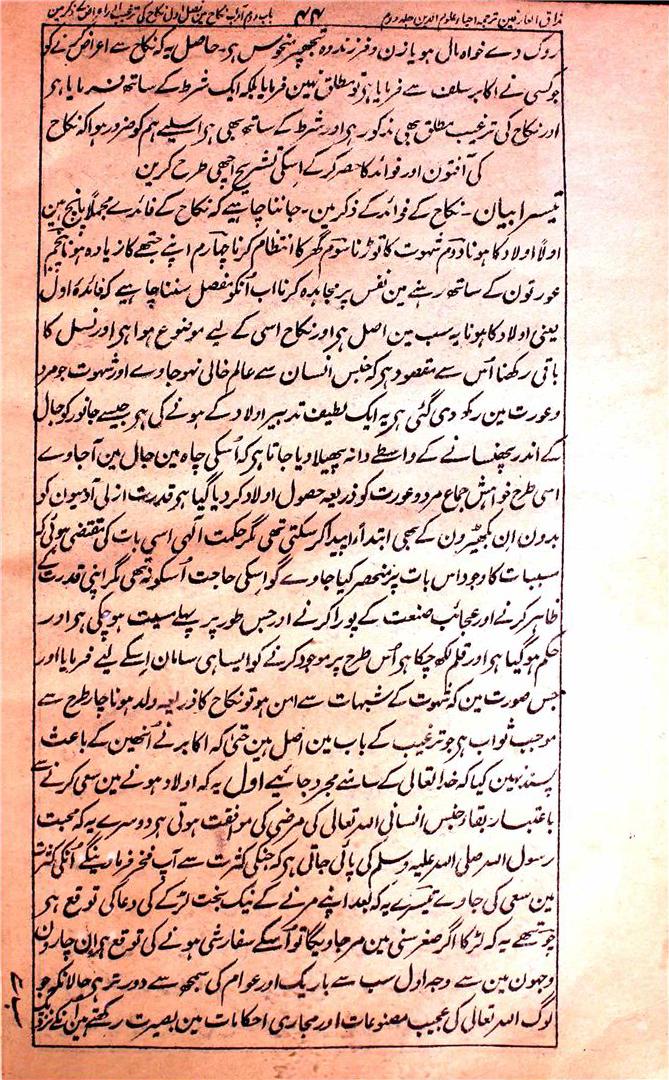 مذاق العارفین ترجمہ احیاء علوم الدین جلد دوم ۴۴ باب دوم آداب نکاح مین فصل اول نکاح کی ترغیب اور اعراض کے ذکر مین
روک دے خواہ مال ہو یا زن و فرزند وہ تجھپر منحوس ہی۔ حاصل یہ کہ نکاح سے اعراض کرنے کو
جو کسی نے اکابر سلف سے فرمایا ہی تو مطلق نہین فرمایا بلکہ ایک شرط کے ساتھ فرمایا ہی
اور نکاح کی ترغیب مطلق بھی مذکور ہی اور شرط کے ساتھ بھی ہی اسلیے ہمکو ضرور ہوا کہ نکاح
کی آفتون اور فوائد کا حصر کرکے اسکی تشریح اچھی طرح کرین
تیسرا بیان۔ نکاح کے فوائد کے ذکر مین۔ جاننا چاہیے کہ نکاح کے فائدے مجملاً پانچ ہین
اولاً اولاد کا ہونا دوم شہوت کا توڑنا سوم گھر کا انتظام کرنا چہارم اپنے جتھے کا زیادہ ہونا پنجم
عورتون کے ساتھ رہنے مین نفس پر مجاہدہ کرنا اب اُنکو مفصل سننا چاہیے کہ فائدۂ اول
یعنی اولاد کا ہونا یہ سب مین اصل ہی اور نکاح اسی کے لیے موضوع ہوا ہی اور نسل کا
باقی رکھنا اُس سے مقصود ہی کہ جنس انسان سے عالم خالی نہو جاوے اور شہوت جو مرد
و عورت مین رکھ دی گئی ہی یہ ایک لطیف تدبیر اولاد کے ہونے کی ہی جیسے جانور کو جال
کے اندر پھنسانے کے واسطے دانہ پھیلا دیا جاتا ہی کہ اُسکی چاہ مین جال مین آجاوے
اسی طرح خواہش جماع مرد و عورت کو ذریعہ حصول اولاد کردیا گیا ہی قدرت ازلی آدمیون کو
بدون ان بکھیڑون کے بھی ابتداءً پیدا کر سکتی تھی مگر حکمت الٰہی اسی بات کی مقتضی ہوئی کہ
مسببات کا وجود اس بات پر منحصر کیا جاوے گو اسکی حاجت اُسکو نہ تھی مگر اپنی قدرت کے
ظاہر کرنے اور عجائب صنعت کے پورا کرنے اور جس طور پر پہلے مشیت ہو چکی ہی اور
حکم ہو گیا ہی اور قلم لکھ چکا ہی اُس طرح پر موجود کرنے کو ایسا ہی سامان اسکے لیے فرمایا اور
جس صورت مین کہ شہوت کے شبہات سے امن ہو تو نکاح کا ذریعہ ولد ہونا چار طرح سے
موجب ثواب ہی جو ترغیب کے باب مین اصل ہین حتی کہ اکابر نے اُنھین کے باعث
پسند نہین کیا کہ خدا تعالی کے سامنے مجرد جائیے اول یہ کہ اولاد ہونے مین سعی کرنے سے
باعتبار بقاء جنس انسانی اللہ تعالی کی مرضی کی موافقت ہوتی ہی دوسرے یہ کہ محبت
رسول اللہ صلی اللہ علیہ وسلم کی پائی جاتی ہی کہ جنکی کثرت سے آپ فخر فرماوینگے اُنکی کثرت
مین سعی کی جاوے تیسرے یہ کہ بعد اپنے مرنے کے نیک بخت لڑکے کی دعا کی توقع ہی
چوتھے یہ کہ لڑکا اگر صغر سنی مین مرجاویگا تو اُسکے سفارشی ہونے کی توقع ہی ان چارون
وجہون مین سے وجہ اول سب سے باریک اور عوام کی سمجھ سے دور تر ہی حالانکہ جو
لوگ اللہ تعالی کی عجیب مصنوعات اور مجاری احکامات مین بصیرت رکھتے ہین اُنکے نزدیک